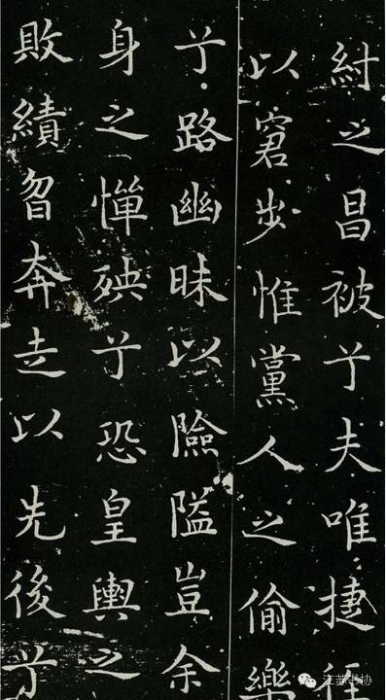 紂之昌被兮夫唯捷徑
以窘步惟黨人之偷樂
兮路幽昧以險隘豈余
身之憚殃兮恐皇輿之
敗績曶奔走以先後兮
江苏书协